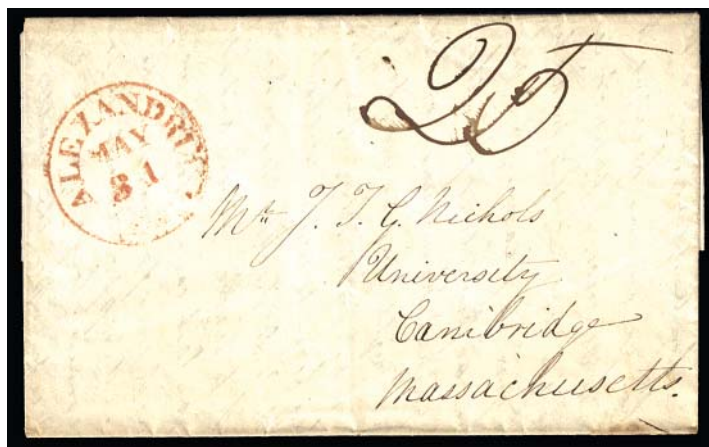 25
ALEXANDRIA
MAY
31
Mr J. T. G. Nichols
University
Cambridge
Massachusetts.